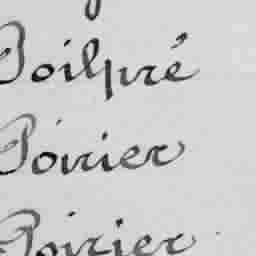 Poilpré
Poirier
Poirier